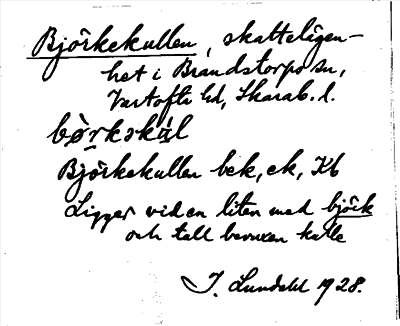 Björkekullen, skattelägen-
het i Brandstorps sn,
Vartofta hd, Skarab. l.
börkskúl
Björkekullen bek, ek, Kb
Ligger vid en liten med björk
och tall bevuxen kulle
J. Lundahl 1928.